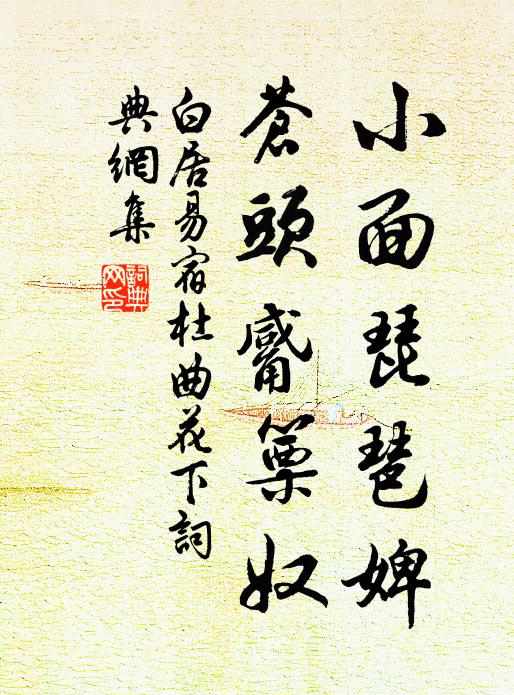 小面琵琶婢
蒼頭觱篥奴
白居易宿杜曲花下詞
典網集
詞典
网印